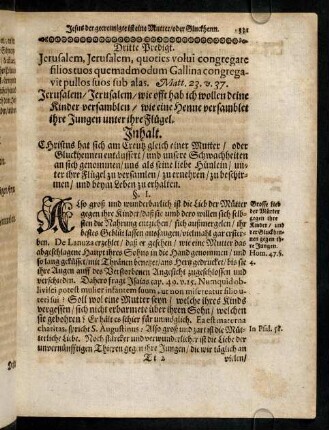 Jesus der gecreutzigte ist eine Mutter / oder Gluckhenn. 331
Dritte Predigt.
Jerusalem, Jerusalem, quoties volui congregare
filios tuos quemadmodum Gallina congrega-
vit pullos suos sub alas. Matt. 23. v. 37.
Jerusalem / Jerusalem / wie offt hab ich wollen deine
Kinder versamblen / wie eine Henne versamblet
ihre Jungen unter ihre Flügel.
Inhalt.
CHristus hat sich am Creutz gleich einer Mutter / oder
Gluckhennen entäussert / und unsere Schwachheiten
an sich genommen / uns als seine liebe Hünlein / un-
ter ihre Flügel zu versamlen / zu ernehren / zu beschir-
men / und beym Leben zu erhalten.
§. 1.
Also groß und wunderbarlich ist die Lieb der Mütter
gegen ihre Kinder / daß sie umb dero willen sich selb-
sten die Nahrung entziehen / sich außmerglen / ihr
bestes Geblüt lassen außsaugen / vielmahl gar erster-
ben. De Lanuza erzehlet / daß er gesehen / wie eine Mutter das
abgeschlagene Haupt ihres Sohns in die Hand genommen / und
so lang gekust / mit Thränen benetzt / ans Herz gedrucket / biß sie
ihre Augen auff des Verstorbenen Angesicht zugeschlossen und
verschieden. Dahero fragt Isaias cap. 49. v. 15. Numquid obli-
visci potest mulier infantem suum, ut non misereatur filio u-
teri sui? Soll wol eine Mutter seyn / welche ihres Kinds
vergessen / sich nicht erbarmete über ihren Sohn / welchen
sie gebohren? Er hält es schier für unmöglich. Ea est materna
charitas, spricht S. Augustinus: Also groß und zart ist die Müt-
terliche Liebe. Noch stärcker und verwunderlicher ist die Liebe der
unvernünfftigen Thieren gegen ihre Jungen / die wir täglich an
Tt 2 vielen /
Grosse Lieb
der Mütter
gegen ihre
Kinder / und
der Gluckhen-
nen gegen ih-
re Jungen.
Hom. 47. §.
4.
In Psal. 58.